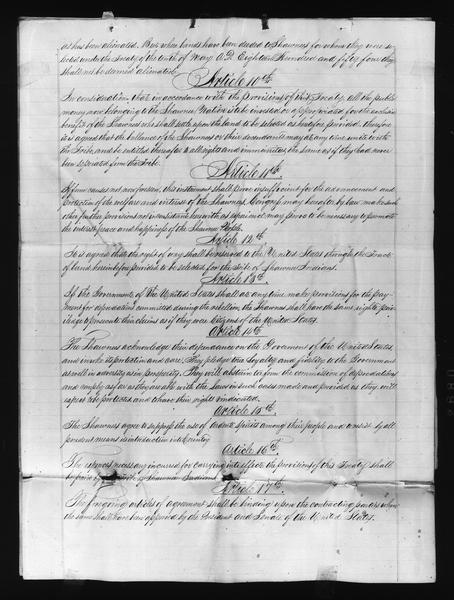 as has been alienated. But when lands have been deeded to Shawnees for whom they were se-
lected under the Treaty of the tenth of May A.D. Eighteen Hundred and fifty four they
shall not be deemed alienated.
Article 10th.
In consideration that in accordance with the provisions of this Treaty all the public
money now belonging to the Shawnee Nation is to be invested or appropriated for the exclusive
benefit of the Shawnees who shall settle upon the land to be selected as before provided, therefore
it is agreed that the balance of the Shawnees or their descendants may at any time unite with
the tribe, and be entitled thereafter to all rights and immunities, the same as if they had never
been separated from the tribe.
Article 11th.
If from causes not now foreseen, this instrument shall prove insufficient for the advancement and
protection of the welfare and interest of the Shawnees, Congress may hereafter by law make such
other further provisions not inconsistent herewith as experience may prove to be necessary to promote
the interest peace and happiness of the Shawnee People.
Article 12th.
It is agreed that the right of way shall be reserved to the United States through the Tract
of land herein before provided to be selected for the tribe of Shawnee Indians.
Article 13th.
If the Government of the United States shall at any time make provisions for the pay-
ment for depredations committed during the rebellion, the Shawnees shall have the same rights, priv-
ilege to prosecute their claims as if they were citizens of the United States.
Article 14th.
The Shawnees acknowledge their dependence on the Government of the United States,
and invoke its protection and care. They pledge their Loyalty and fidelity to the Government
as well in adversity as in prosperity. They will abstain from the commission of depredations
and comply as far as they are able with the Laws in such cases made and provided as they will
expect to be protected and to have their rights vindicated.
Article 15th.
The Shawnees agree to suppress the use of ardent spirits among their people and resist by all
prudent means its introduction into their country.
Article 16th.
The expenses necessary incurred for carrying into effect the provisions of this Treaty shall
be paid by Shawnee Indians
Article 17th.
The foregoing articles of agreement shall be binding upon the contracting parties when
the same shall have been approved by the President and Senate of the United States.